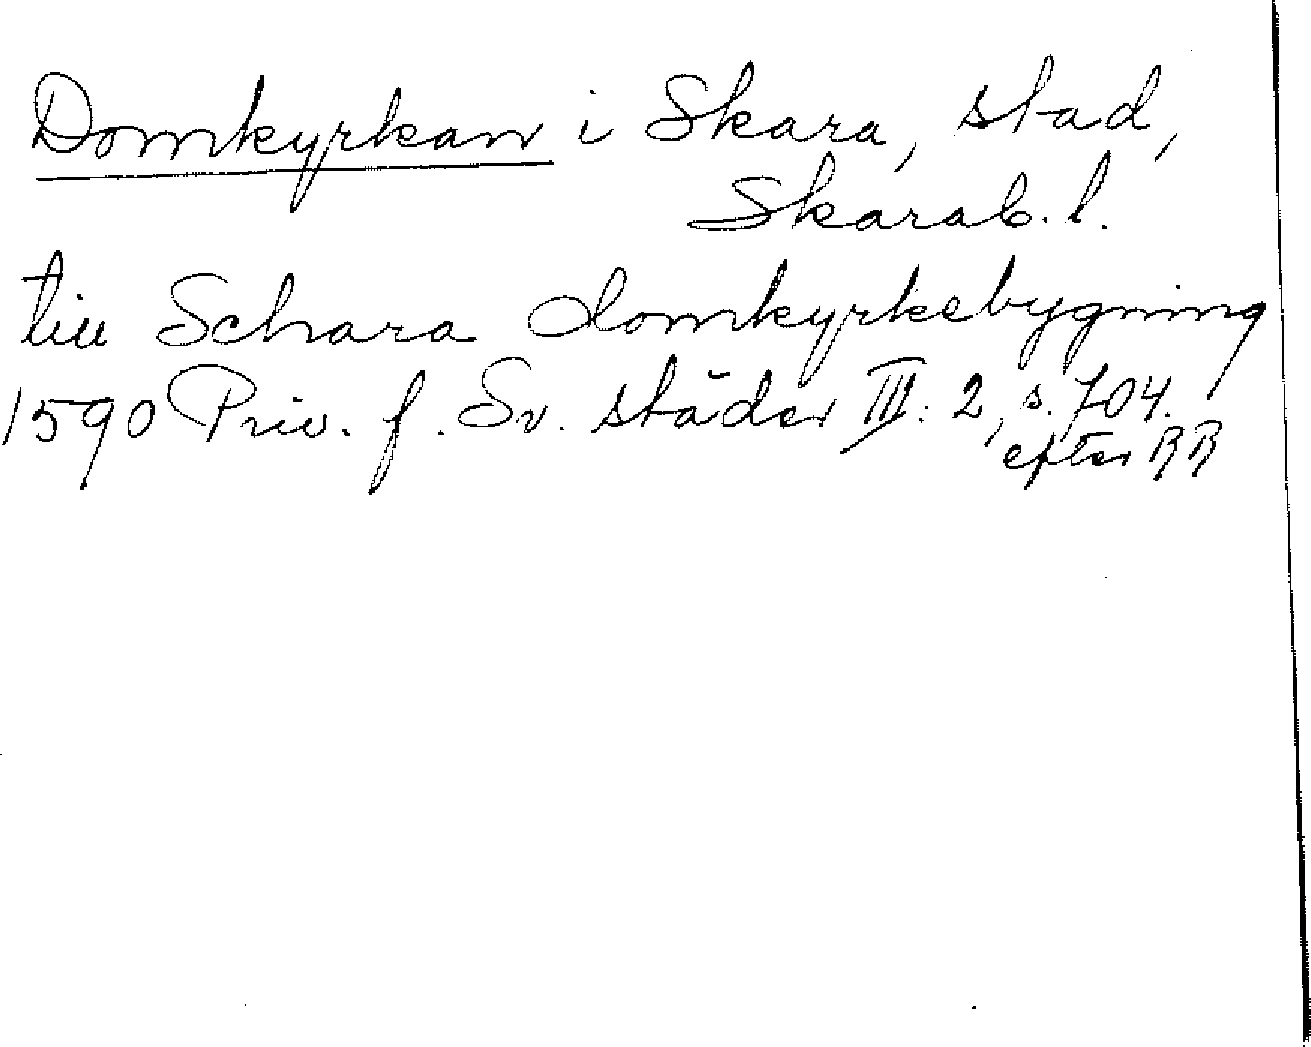 Domkyrkan i Skara, stad,
Skarab. l.
till Schara domkyrkebygning
1590 Priv. f. Sv. städer III: 2, s. 704.
efter RR